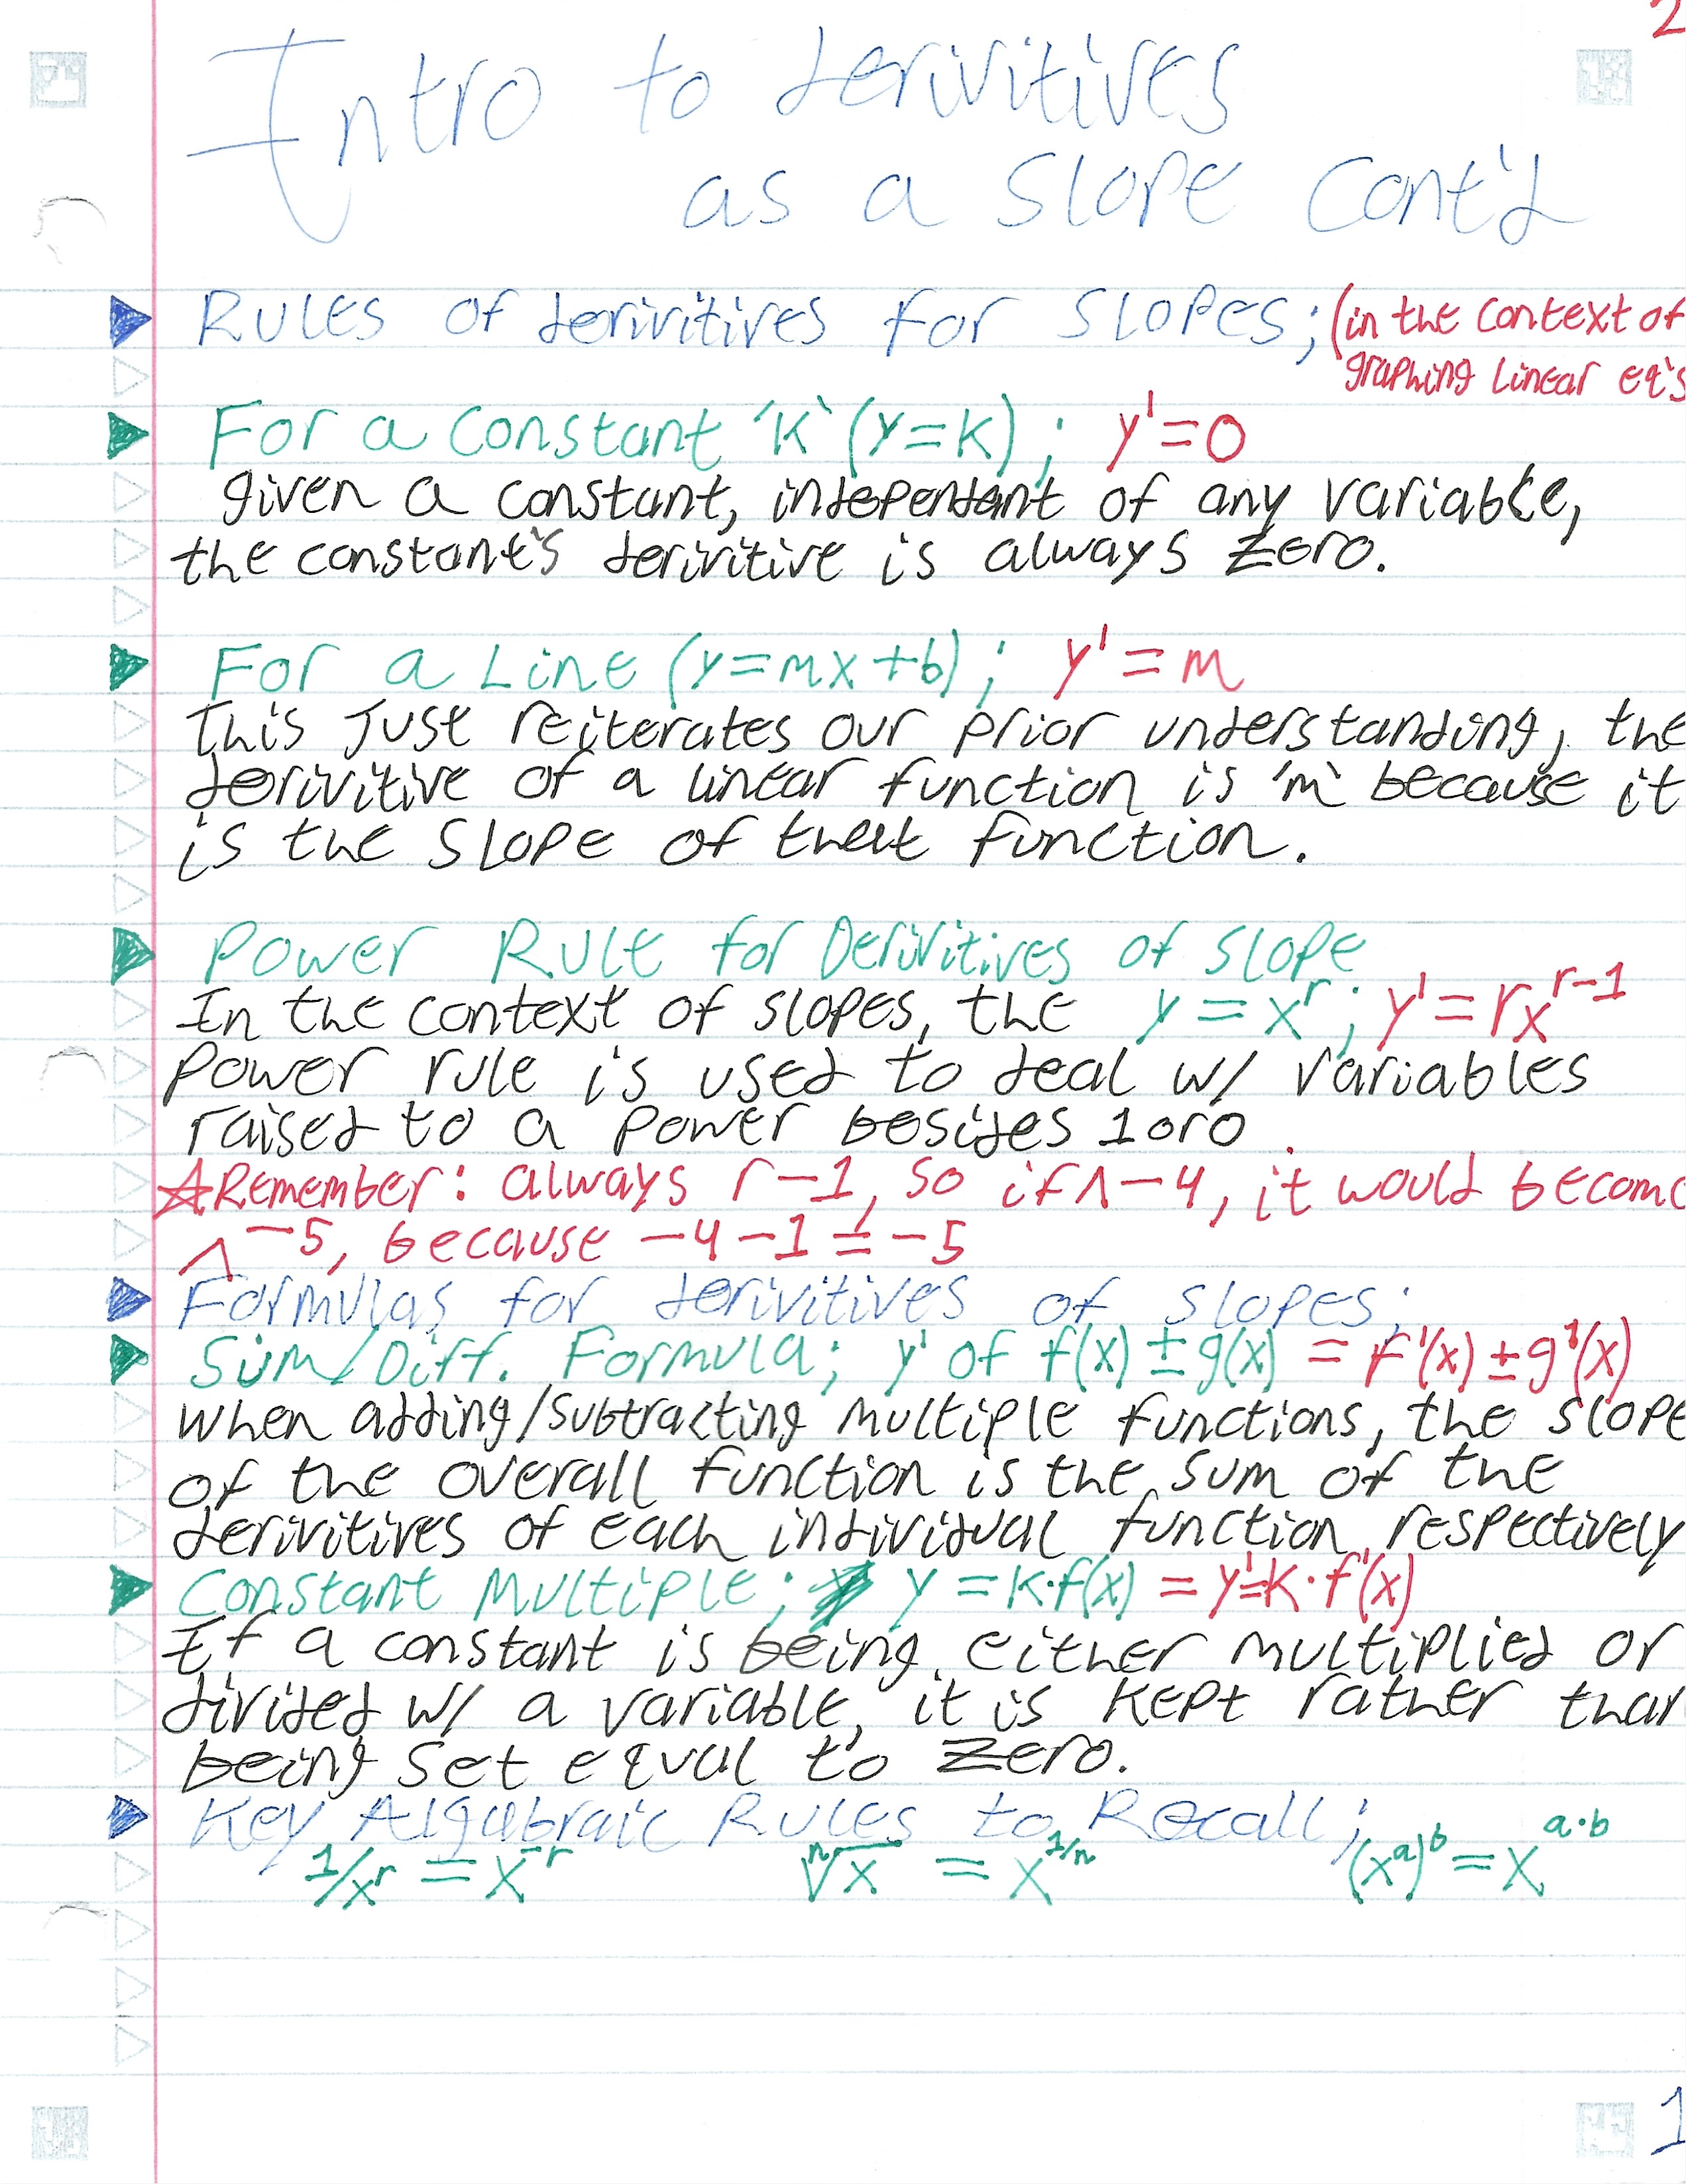 2
Intro to derivitives
as a slope cont'd
Rules of derivitives for slopes; (in the context of
graphing linear eq's
For a constant 'K' (y=K); y'=0
given a constant, independant of any variable,
the constant's derivitive is always zero.
For a Line (y=mx+b); y'=m
This just reiterates our prior understanding, the
derivitive of a linear function is 'm' because it
is the slope of that function.
Power Rule for Derivitives of slope
In the context of slopes, the y=x^r; y'=rx^{r-1}
Power rule is used to deal w/ variables
raised to a power besides 1 or 0.
☆Remember: always r-1, so if ^-4, it would become
^-5, because -4-1=-5
Formulas for derivitives of slopes;
Sum/Diff. Formula; y' of f(x)±g(x) = f'(x)±g'(x)
when adding/subtracting multiple functions, the slope
of the overall function is the sum of the
derivitives of each individual function respectively
Constant Multiple; y=K·f(x) = y'=K·f'(x)
If a constant is being either multiplied or
divided w/ a variable, it is kept rather than
being set equal to zero.
Key Algabraic Rules to Recall;
1/x^r = x^{-r} ⁿ√x = x^{1/n} (x^a)^b = x^{a·b}
1